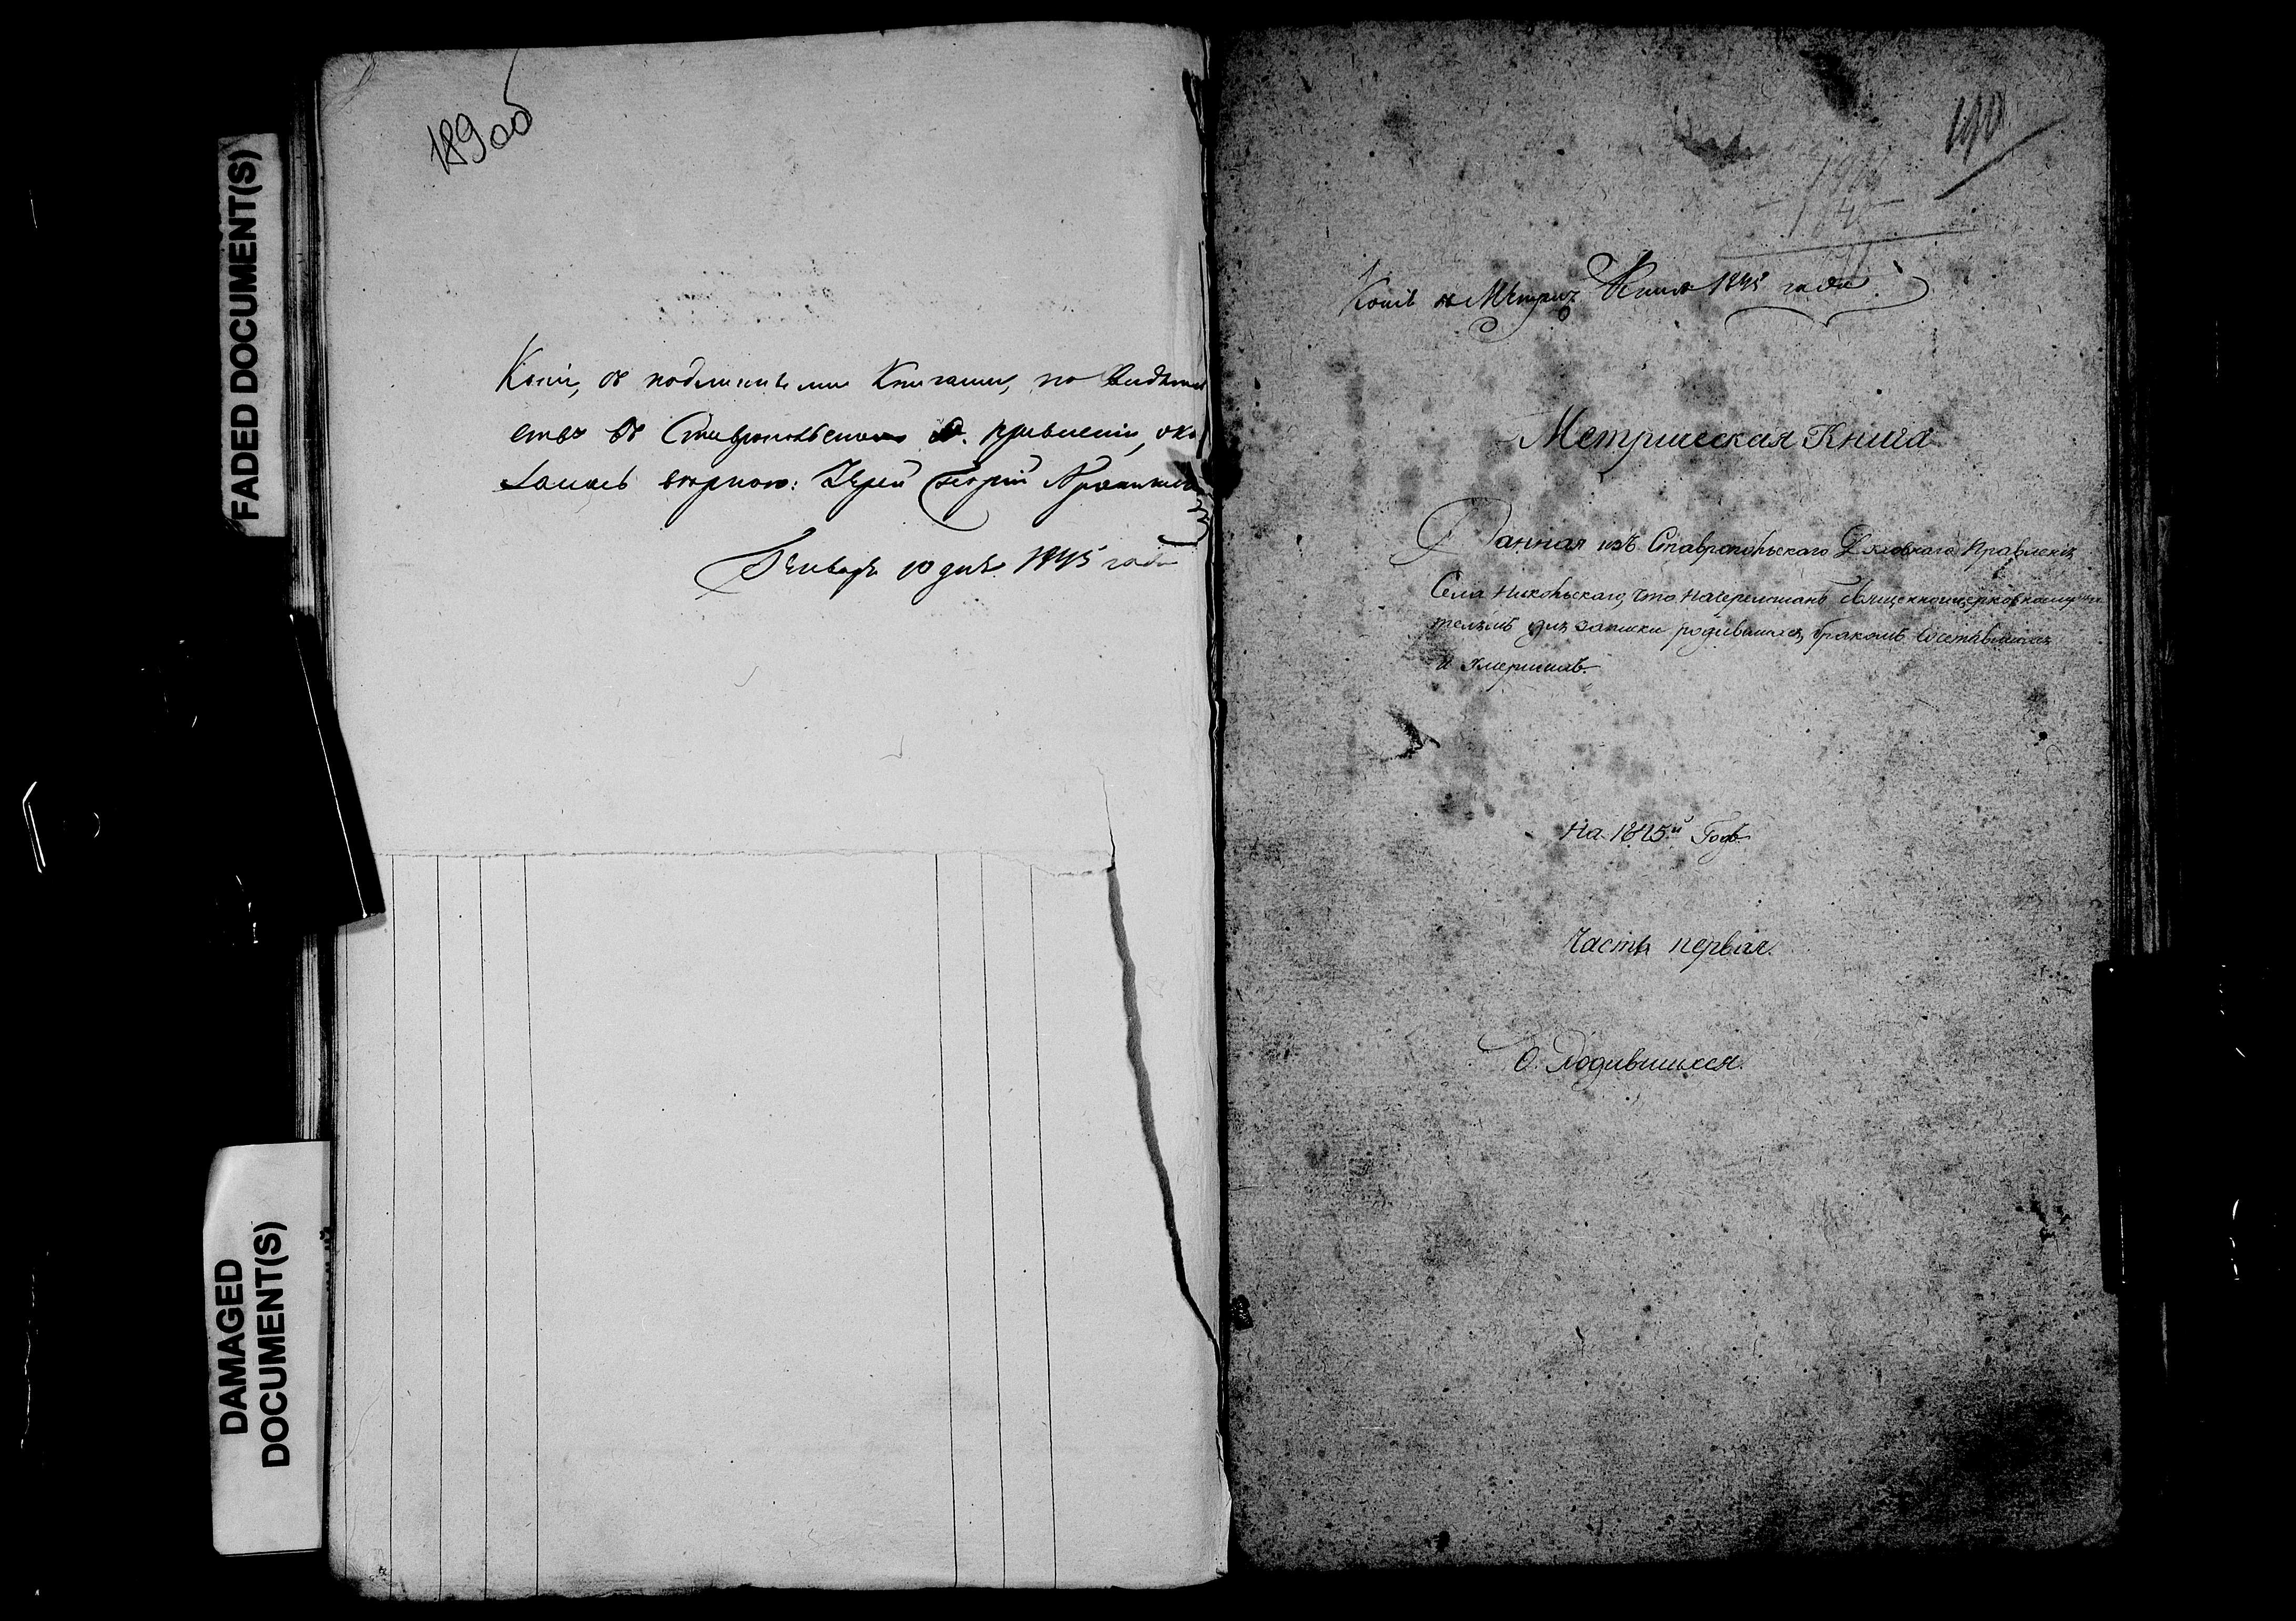 FADED DOCUMENT(S)
DAMAGED
DOCUMENT(S)
189 об
Копiи, съ подлинными Книгами, по
въ Ставропольскомъ Д. правленiи, ока
зались вѣрною: Iерей Георгiй
Генваря 10 дня 1845 года
190
Копiя съ Метрич. Книги 1845 года
Метрическая Книга
Данная изъ Ставропольскаго Духовнаго Правленiя
Села Никольскаго, что на Черемшанѣ священноцерковнослужи
телямъ для записки родившихся, бракомъ сочетавшихся
и умершихъ.
На 1845й Годъ.
Часть первая.
О Родившихся.